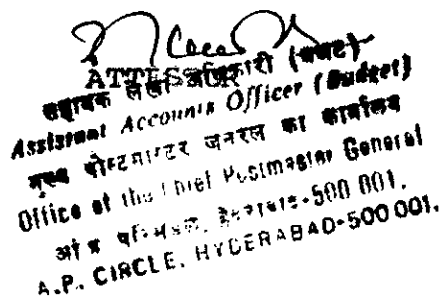 ATTESTED
सहायक लेखा अधिकारी (बजट)
Assistant Accounts Officer (Budget)
मुख्य पोस्टमास्टर जनरल का कार्यालय
Office of the Chief Postmaster General
आं प्र परिमंडल, हैदराबाद-500 001.
A.P. CIRCLE, HYDERABAD-500 001.